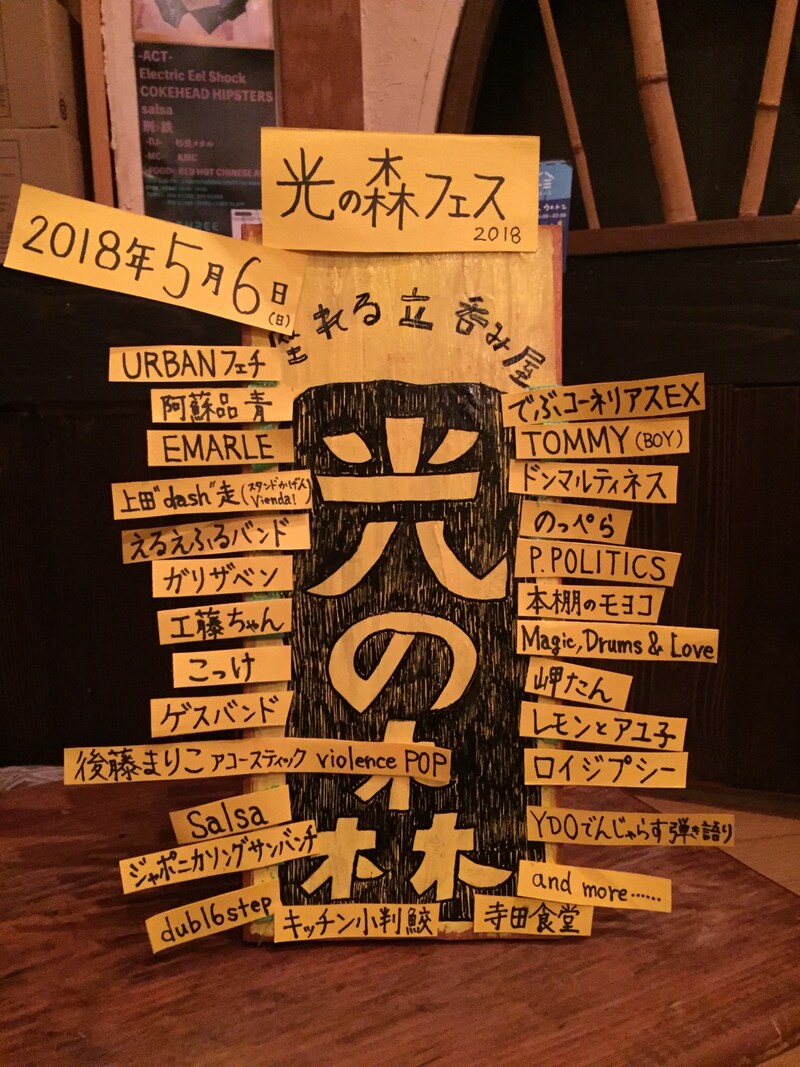 -ACT-
Electric Eel Shock
COKEHEAD HIPSTERS
salsa
-DJ-
-MC- KMC
-FOOD- RED HOT CHINESE
光の森フェス
2018
2018年5月6日
(日)
座れる立呑み屋
光の森
URBANフェチ
阿蘇品 青
EMARLE
上田"dash"走(スタンドかげん
Vienda!)
えるえふるバンド
ガリザベン
工藤ちゃん
こっけ
ゲスバンド
後藤まりこ アコースティック violence POP
Salsa
ジャポニカソングサンバンチ
dub16step
でぶコーネリアスEX
TOMMY (BOY)
ドンマルティネス
のっぺら
P.POLITICS
本棚のモヨコ
Magic, Drums & Love
岬たん
レモンとアユ子
ロイジプシー
YDOでんじゃらす弾き語り
and more......
キッチン小判鮫
寺田食堂